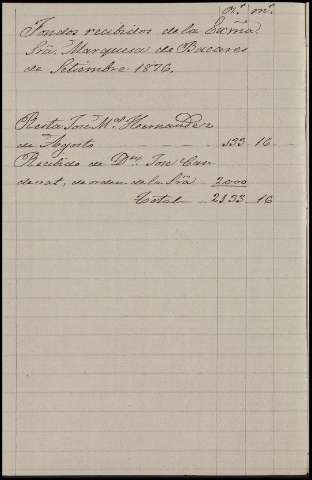 r.s m.s
Fondos recibidos de la Exma.
Sra. Marquesa de Bacares
de Setiembre 1876.
Resta José M.a Hernandez
de Agosto 133 16
Recibido de D.n José Can
denat, de orden de la Sra 2000
Total 2133 16